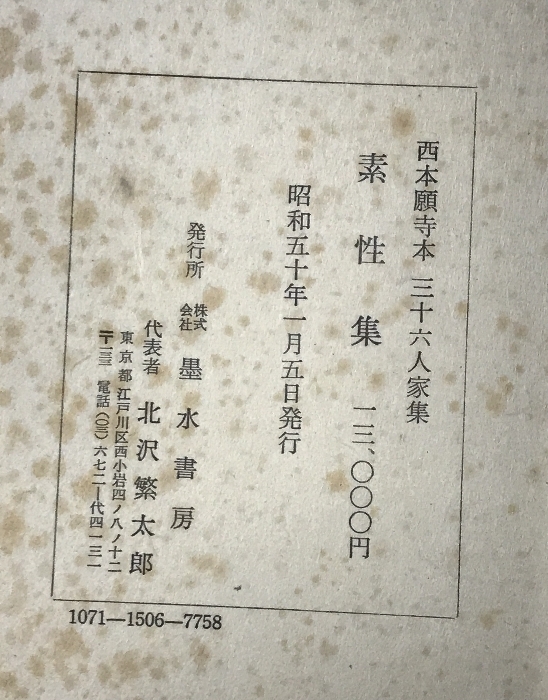 西本願寺本 三十六人家集
素性集 一三、〇〇〇円
昭和五十年一月五日発行
発行所 株式会社 墨水書房
代表者 北沢繁太郎
東京都江戸川区西小岩四ノ八ノ十二
〒一三三 電話(〇三)六七二ー代四一三一
1071—1506—7758